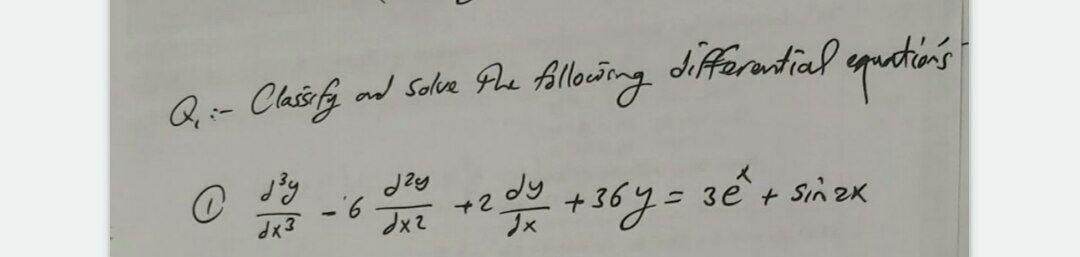 Q₁ :- Classify and solve the following differential equations
① d³y/dx³ - 6 d²y/dx² + 2 dy/dx + 36y = 3eˣ + sin 2x